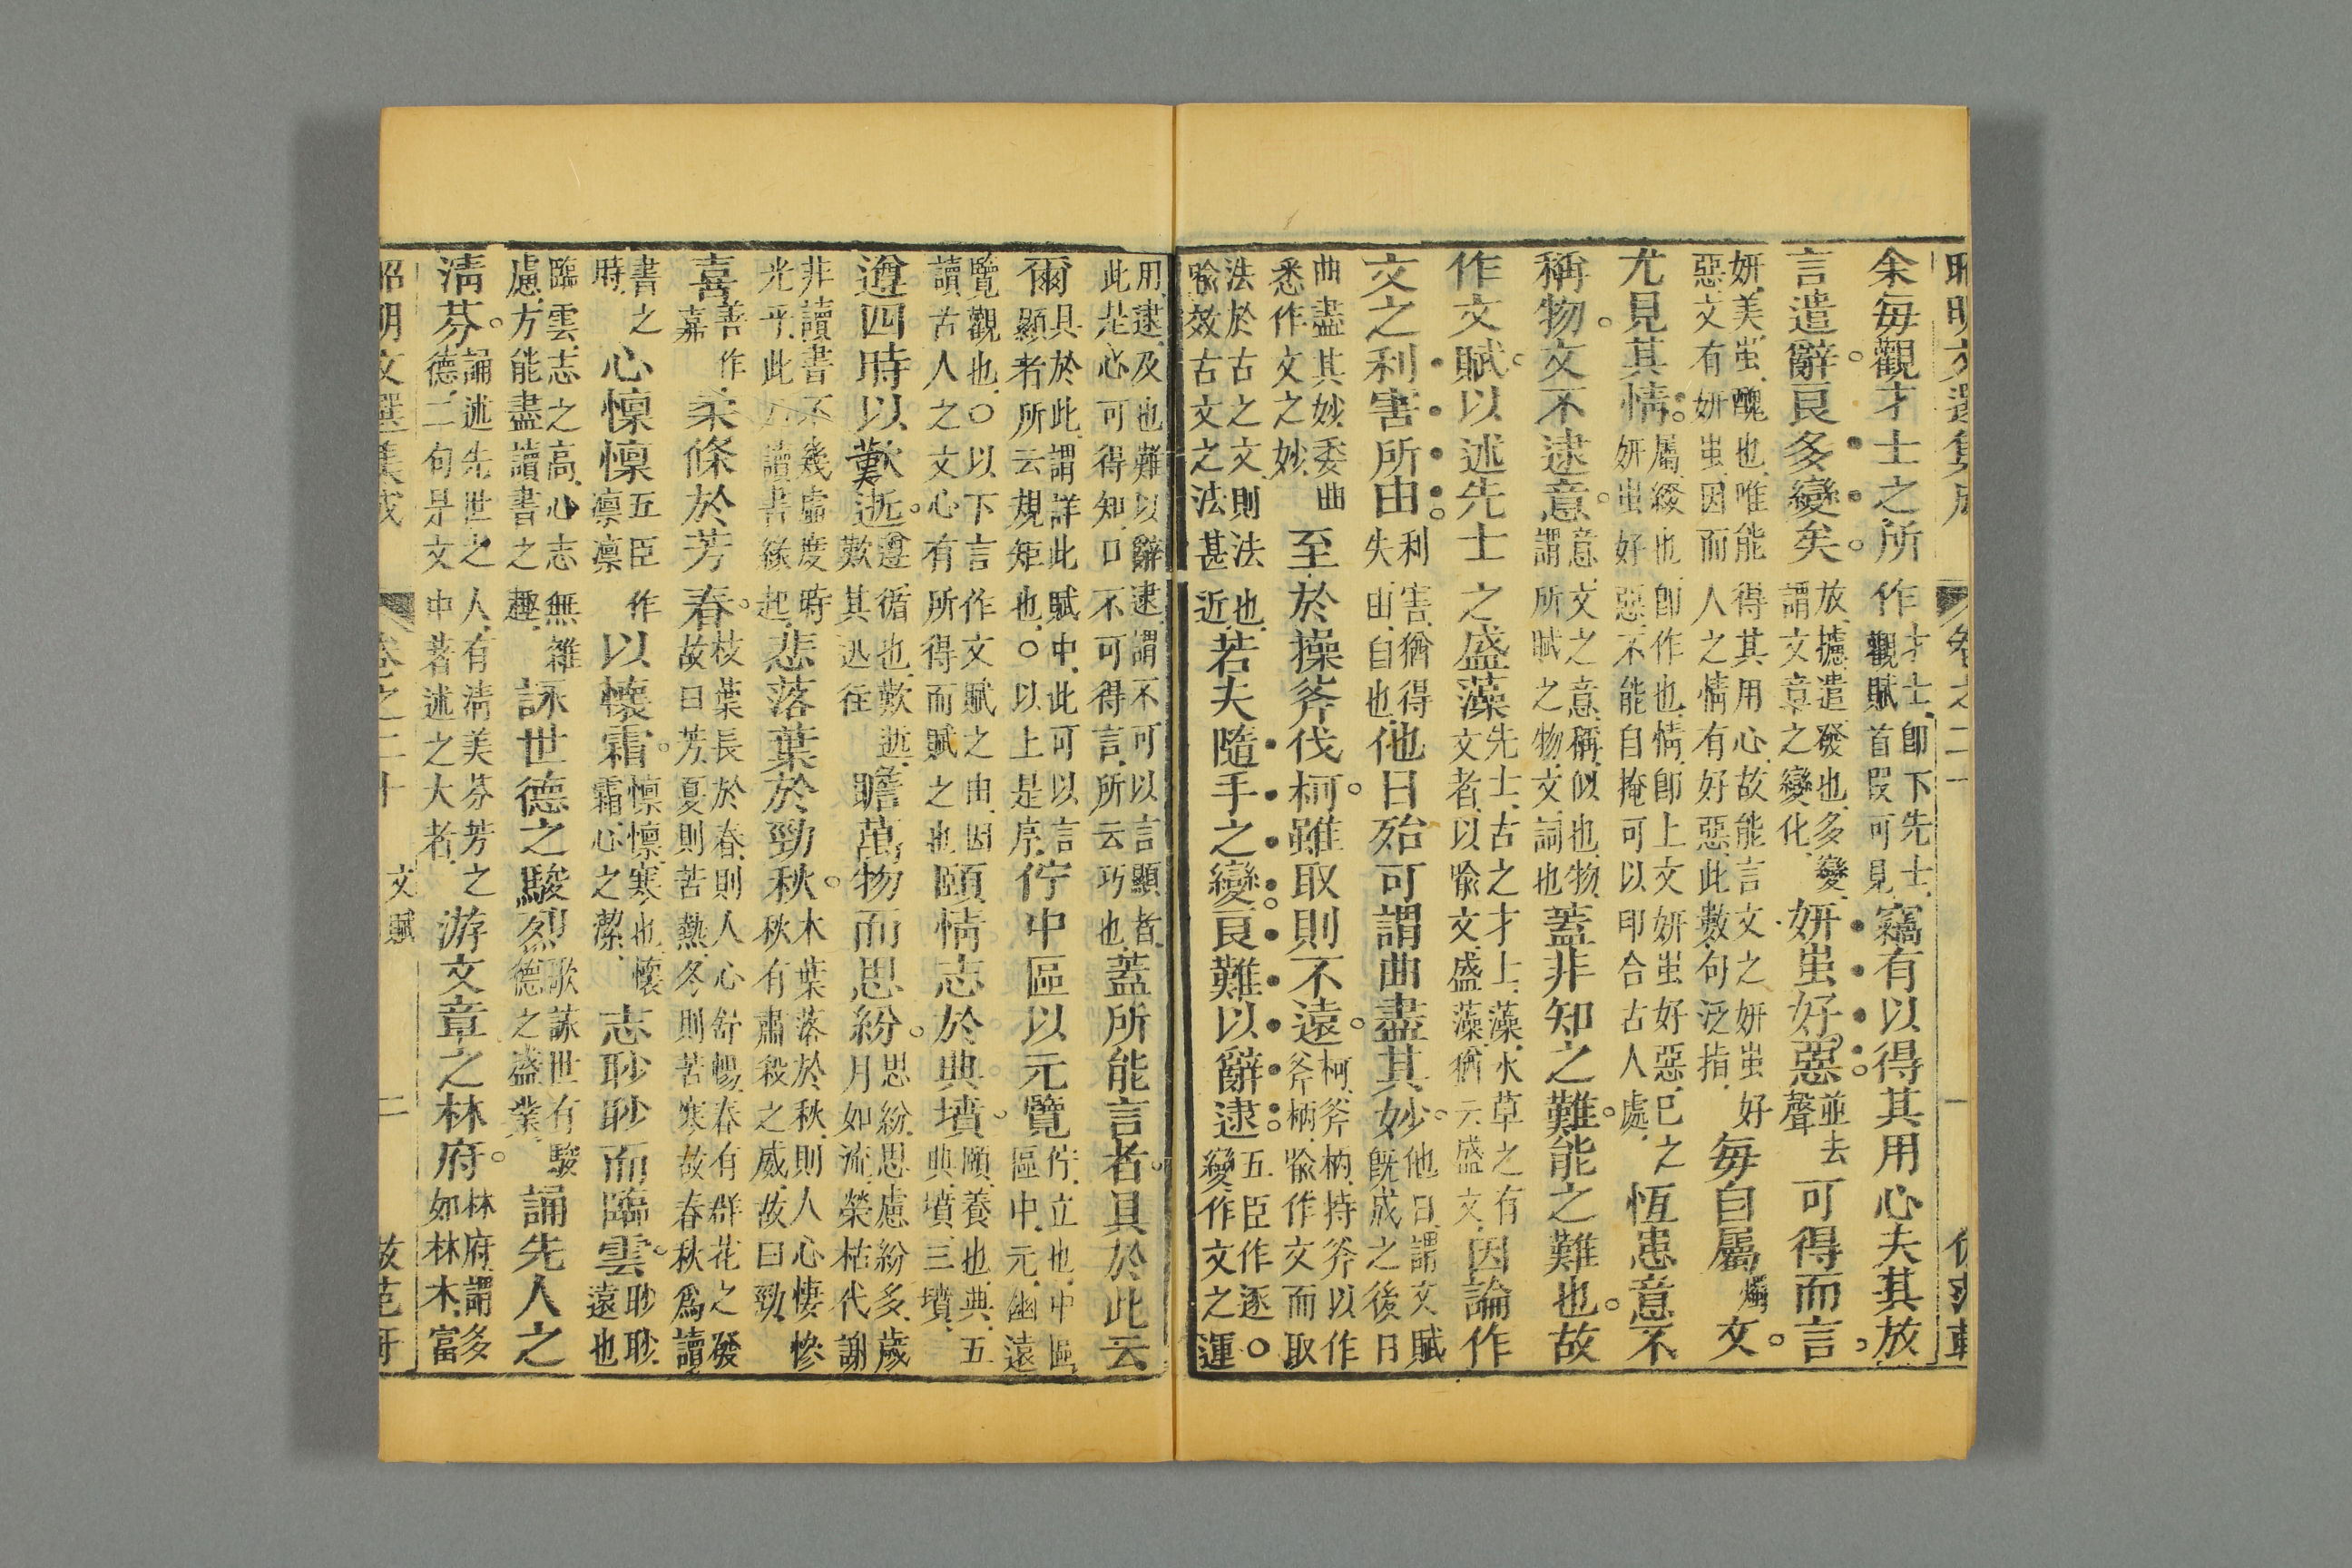 余每觀才士之所作才士即下先士觀賦首叚可見竊有以得其用心夫其放
言遣辭良多變矣放攄遣發也多變謂文章之變化妍蚩好惡並去聲可得而言
妍美蚩醜也唯能得其用心故能言文之妍蚩好惡文有妍蚩因而人之情有好惡此數句泛指每自屬燭文
尤見其情屬綴也即作也情即上文妍蚩好惡已之妍蚩好惡不能自掩可以印合古人處恆患意不
稱物文不逮意意文之意稱似也物謂所賦之物文詞也蓋非知之難能之難也故
作文賦以述先士之盛藻先士古之才上藻水草之有文者以喩文盛藻猶云盛文因論作
文之利害所由利害猶得失由自也他日殆可謂曲盡其妙他日謂文賦旣成之後日
曲盡其妙委曲悉作文之妙至於操斧伐柯雖取則不遠柯斧柄持斧以作斧柄喩作文而取
法於古之文則法也喩效古文之法甚近若夫隨手之變良難以辭逮五臣作逐○變作文之運
用逮及也難以辭逮謂不可以言顯者此是心可得知口不可得言所云巧也蓋所能言者具於此云
爾具於此謂詳此賦中此可以言顯者所云規矩也○以上是序佇中區以元覽佇立也中區區中元幽遠
覽觀也○以下言作文賦之由因讀古人之文心有所得而賦之也頤情志於典墳頤養也典五典墳三墳
遵四時以歎逝遵循也歎逝歎其迅往瞻萬物而思紛思紛思慮紛多歲月如流榮枯代謝
非讀書不幾虛度時光乎此乃讀書緣起悲落葉於勁秋木葉落於秋則人心悽慘秋有肅殺之威故曰勁
喜善作嘉柔條於芳春枝葉長於春則人心舒暢春有群花之發故曰芳夏則苦熱冬則苦寒故春秋爲讀
書之時心懍懍五臣作凛凛以懷霜懍懍寒也懷霜心之潔志眇眇而臨雲眇眇遠也
臨雲志之高心志無雜慮方能盡讀書之趣詠世德之駿烈歌詠世有駿德之盛業誦先人之
淸芬誦述先世之人有淸美芬芳之德二句是文中著述之大者游文章之林府林府謂多如林木富
昭明文選集成 卷之二十 文賦 二